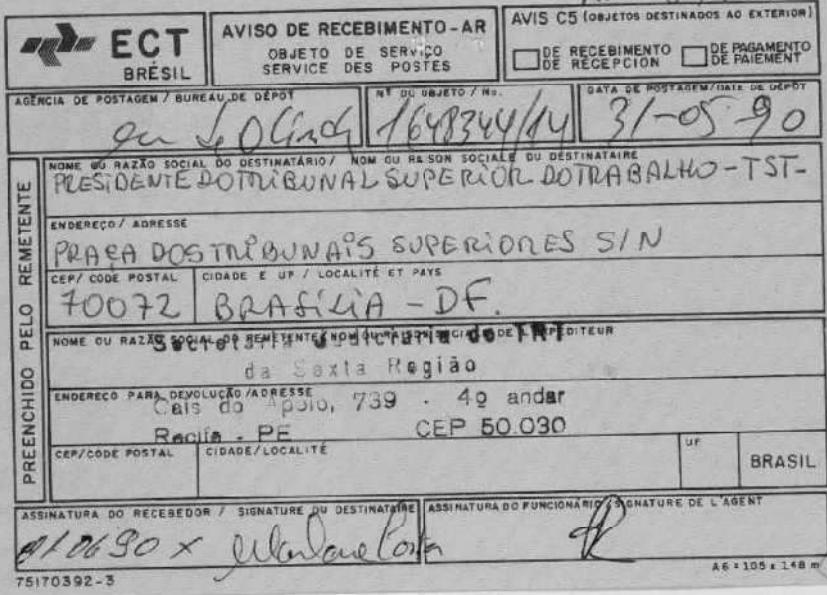 ECT
BRÉSIL
AVISO DE RECEBIMENTO-AR
OBJETO DE SERVIÇO
SERVICE DES POSTES
AVIS C5 (OBJETOS DESTINADOS AO EXTERIOR)
DE RECEBIMENTO
DE RÉCEPCION
DE PAGAMENTO
DE PAIEMENT
AGÊNCIA DE POSTAGEM / BUREAU DE DÉPÔT
Nº DO OBJETO / No.
1648344/14
DATA DE POSTAGEM/DATE DE DÉPÔT
31-05-90
PREENCHIDO PELO REMETENTE
NOME OU RAZÃO SOCIAL DO DESTINATÁRIO / NOM OU RAISON SOCIALE DU DESTINATAIRE
PRESIDENTE DO TRIBUNAL SUPERIOR DO TRABALHO-TST-
ENDEREÇO / ADRESSE
PRAÇA DOS TRIBUNAIS SUPERIORES S/N
CEP/ CODE POSTAL
70072
CIDADE E UF / LOCALITÉ ET PAYS
BRASÍLIA - DF.
NOME OU RAZÃO SOCIAL DO REMETENTE / NOM OU RAISON SOCIALE DE L'EXPÉDITEUR
Secretaria Judiciária do TRT
da Sexta Região
ENDEREÇO PARA DEVOLUÇÃO / ADRESSE
Cais do Apolo, 739 - 4º andar
Recife - PE CEP 50.030
CEP/CODE POSTAL
CIDADE/LOCALITÉ
UF
BRASIL
ASSINATURA DO RECEBEDOR / SIGNATURE DU DESTINATAIRE
ASSINATURA DO FUNCIONÁRIO / SIGNATURE DE L'AGENT
75170392-3
A6 = 105 x 148 m